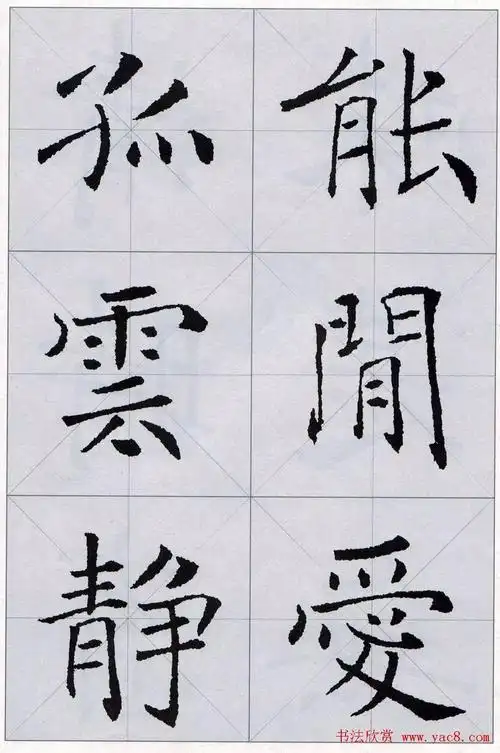 能閒愛
孤雲静
书法欣赏 www.yac8.com